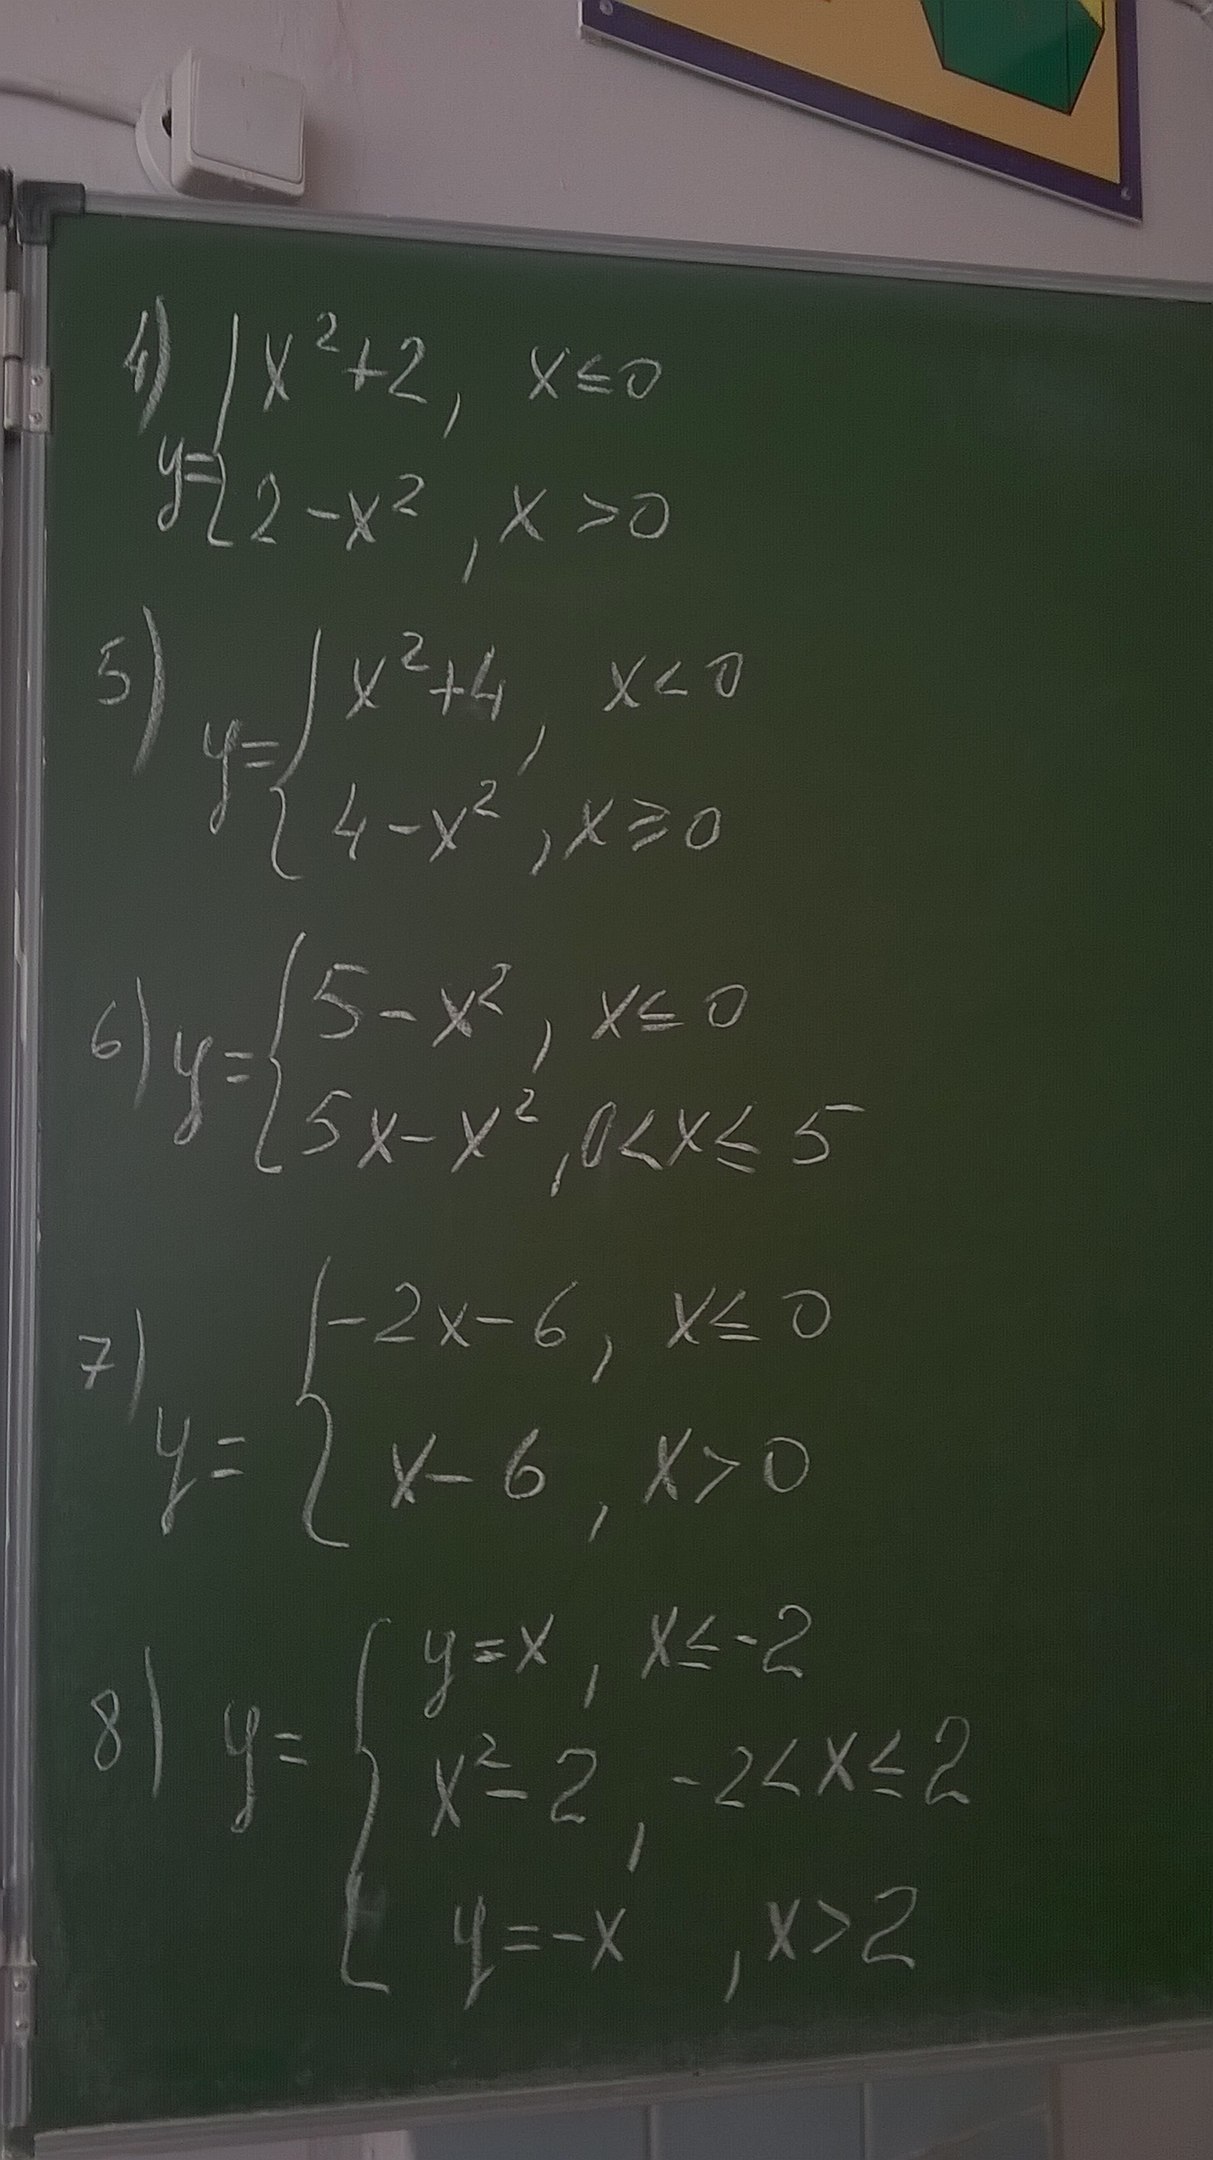 4) y = { x² + 2, x ≤ 0
2 - x², x > 0
5) y = { x² + 4, x < 0
4 - x², x ≥ 0
6) y = { 5 - x², x ≤ 0
5x - x², 0 < x ≤ 5
7) y = { -2x - 6, x ≤ 0
x - 6, x > 0
8) y = { y = x, x ≤ -2
x² - 2, -2 < x ≤ 2
y = -x, x > 2